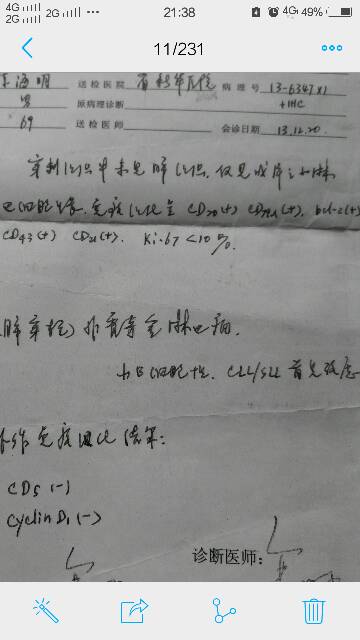 4G 2G 2G 21:38 4G 49%
11/231
送检医院 省科学医院 病理号 13-6347x1
男 原病理诊断 +IHC
69 送检医师 会诊日期 13.12.20.
穿刺组织中未见脾组织,仅见成片小淋
巴细胞 免疫组化呈 CD20(+) bcl-2(+)
CD43(+) CD21(+). Ki-67 <10%.
(脾穿刺) 非霍奇金淋巴瘤.
小B细胞性. CLL/SLL 首先考虑
免疫组化结果:
CD5 (-)
Cyclin D1 (-)
诊断医师: